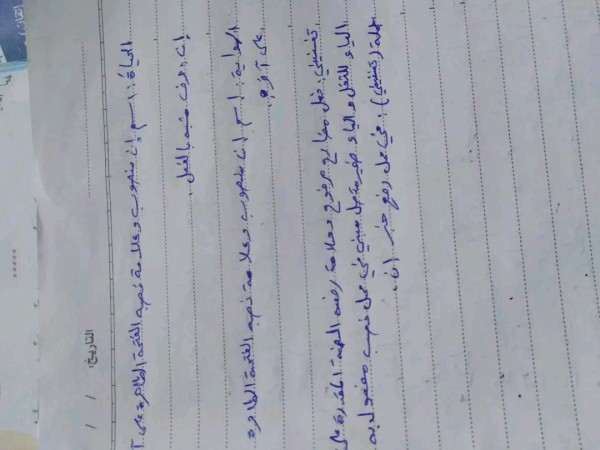 التاريخ: / /
الحياة: اسم إن منصوب وعلامة نصبه الفتحة الظاهرة على آ
إن: حرف مشبه بالفعل.
اسم إن منصوب وعلامة نصبه الفتحة الظاهرة
على آخره
فعل مضارع مرفوع وعلامة رفعه الضمة المقدرة على
الياء للثقل والياء ضمير متصل مبني في محل نصب مفعول به
جملة في محل رفع خبر إن.